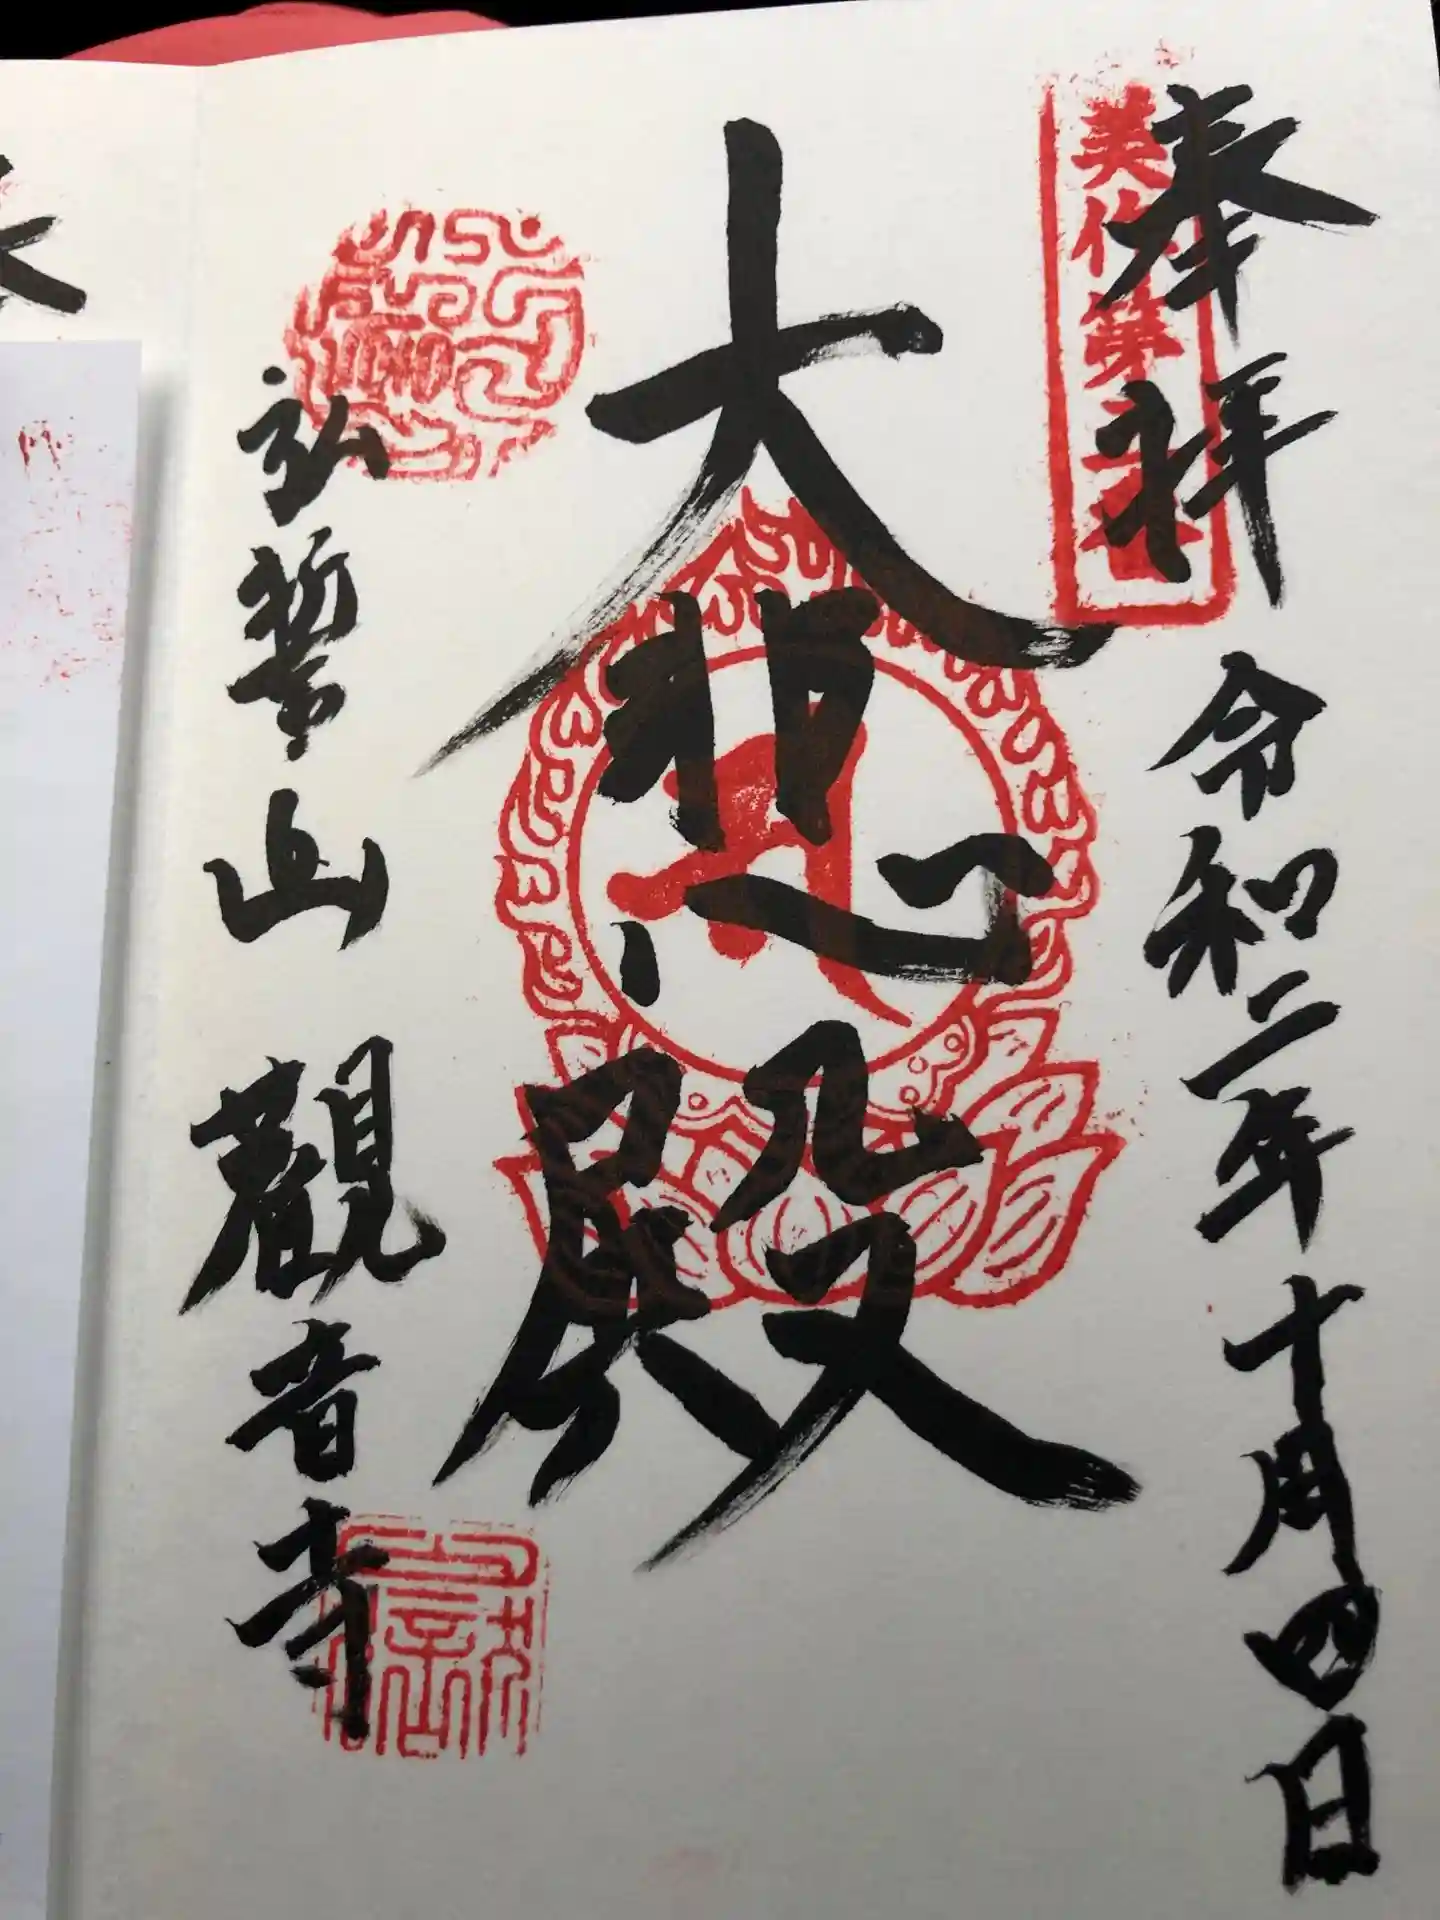 奉拝
令和二年十月四日
美作第
大悲殿
弘誓山 觀音寺